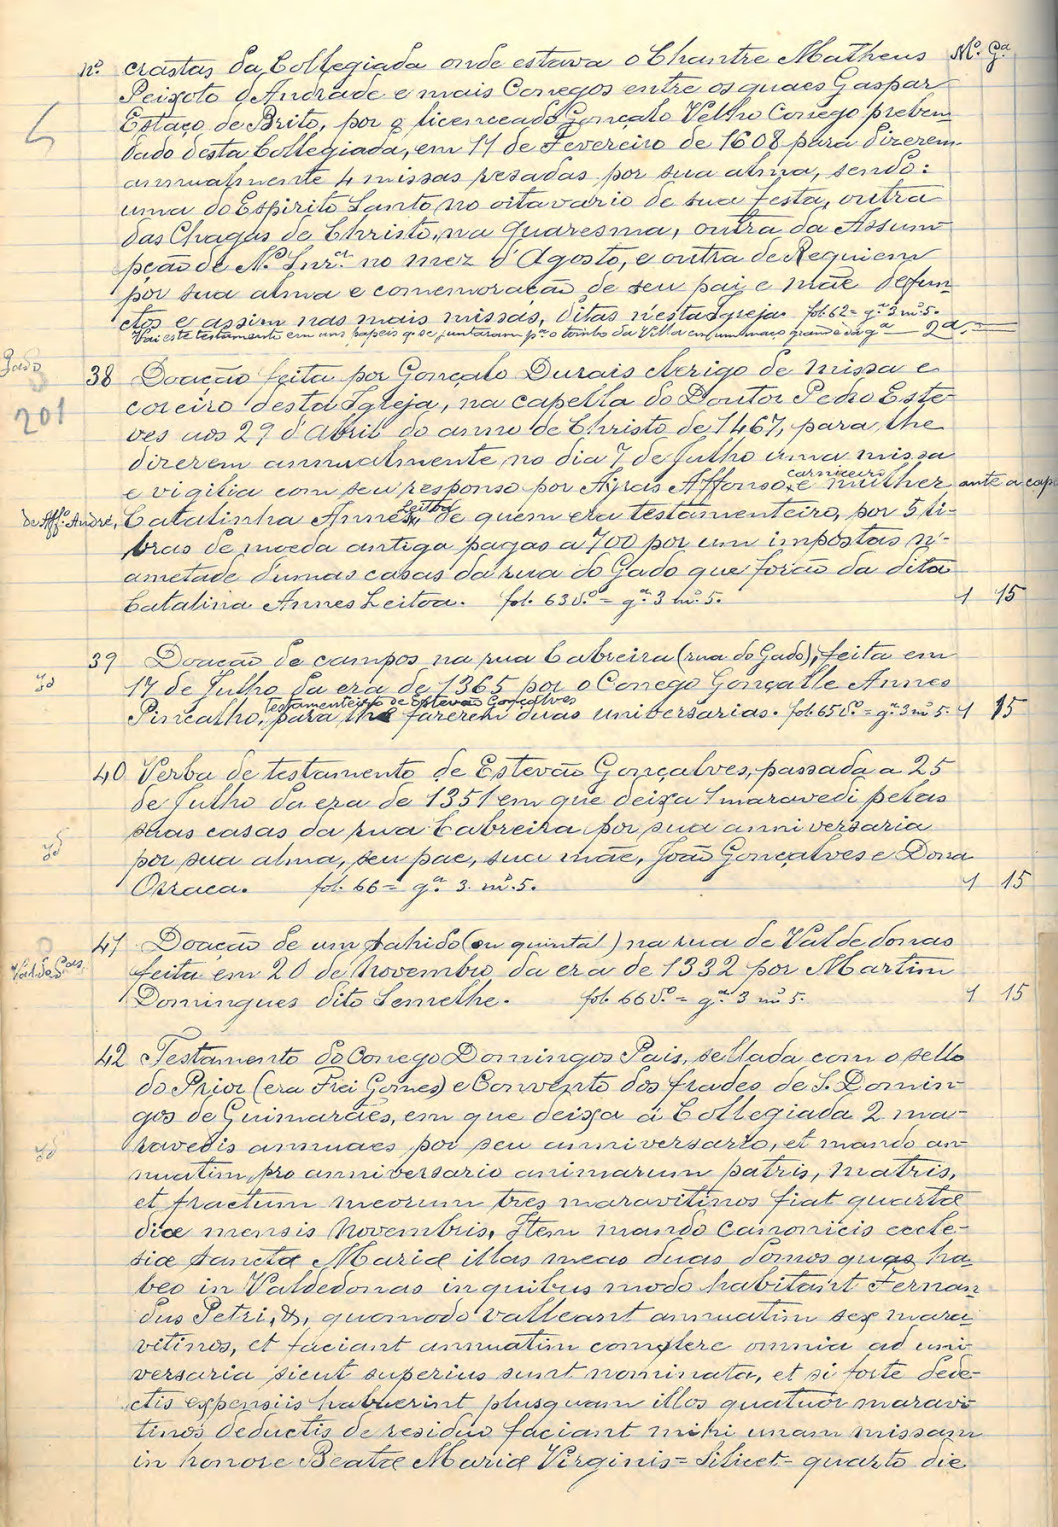 nº. crastas da Collegiada onde estava o Chantre Matheus Mº. Gª.
Peixoto d'Andrade e mais Conegos entre os quaes Gaspar
Estaço de Brito, por o licenceado Gonçalo Velho Conego preben-
dado desta Collegiada, em 11 de Fevereiro de 1608 para dizerem
annualmente 4 missas resadas por sua alma, sendo:
uma do Espirito Santo no oitavario de sua festa, outra
das Chagas de Christo, na Quaresma, outra da Assum-
pção de Nª. Snrª. no mez d'Agosto, e outra de Requiem
por sua alma e comemoração de seu pai e mãe defun-
ctos e assim nas mais missas, ditas n'esta Igreja. fol. 62 = gª. 3 mº. 5.
Vai este testamento em uns papeis q se juntaram pª. o tombo da Villa em um maço grande da gª 2ª.
Gado
201
38 Doação feita por Gonçalo Durais clerigo de missa e
coreiro desta Igreja, na capella do Doutor Pedro Este-
ves aos 29 d'Abril do anno de Christo de 1467, para lhe
dizerem annualmente no dia 7 de Julho uma missa
e vigilia com seu responso por Ayras Affonso, carniceiro e mulher ante a cap
de Affº. André, Catalinha Annes, Leitoa de quem era testamenteiro, por 5 li-
bras de moeda antiga pagas a 700 por um impostas n'
ametade dumas casas da rua do Gado que forão da dita
Catalina Annes Leitoa. fol. 63 vº. = gª. 3 mº. 5. 1 15
39 Doação de campos na rua Cabreira (rua do Gado), feita em
17 de Julho da era de 1365 por o Conego Gonçalle Annes
testamenteiro de Estevão Gonçalves
Pincalho, para lhe fazerem duas universarias. fol. 65 vº. = gª. 3 mº. 5. 1 15
40 Verba de testamento de Estevão Gonçalves, passada a 25
de Julho da era de 1351 em que deixa 1 maravedi pelas
suas casas da rua Cabreira por sua anniversaria
por sua alma, seu pae, sua mãe, João Gonçalves e Dona
Orraca. fol. 66 = gª. 3. mº. 5. 1 15
41 Doação de um sahido (ou quintal) na rua de Valdedonas
feita em 20 de Novembro da era de 1332 por Martim
Domingues dito Semelhe. fol. 66 vº. = gª. 3 mº 5. 1 15
42 Testamento do Conego Domingos Pais, sellada com o sello
do Prior (era Frei Gomes) e Convento dos frades de S. Domin-
gos de Guimarães, em que deixa á Collegiada 2 ma-
ravedis annuaes por seu anniversario, et mando an-
nuatim pro anniversario animarum patris, matris,
et fractum meorum tres maravitinos fiat quarta
die mensis Novembris, Item mando canonicis eccle-
siæ sanctæ Mariæ illas meas duas domos quas ha-
beo in Valdedonas in quibus modo habitant Fernan-
dus Petri, &, quomodo valleant annuatim sex mara-
vitinos, et faciant annuatim complere omnia ad uni-
versaria sicut superius sunt nominata, et si forte dede-
ctis expensiis habuerint plusquam illos quatuor maravi-
tinos deductis de residuo faciant mihi unam missam
in honore Beatæ Mariæ Virginis = Silicet = quarto die